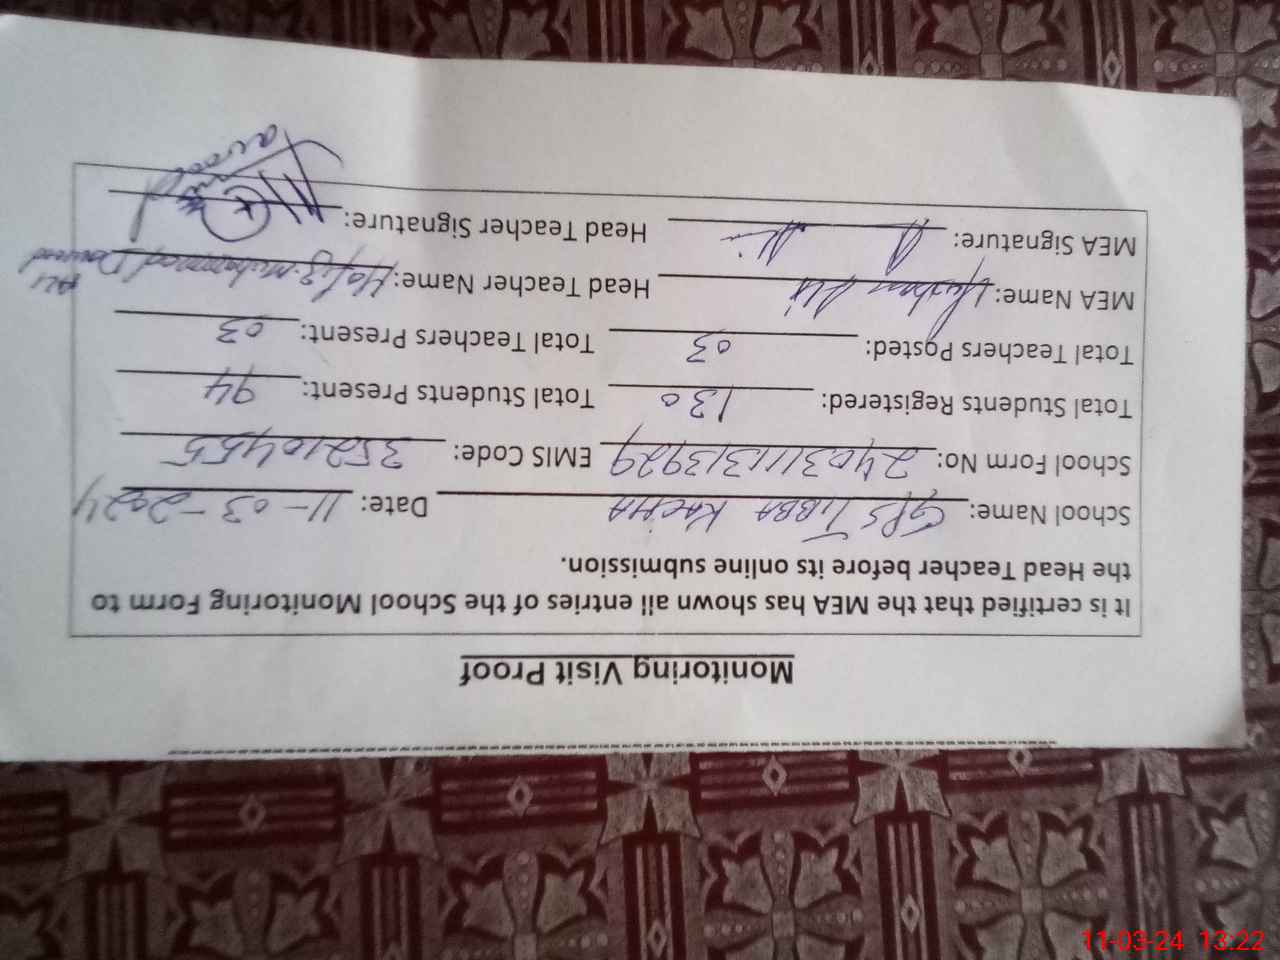 Monitoring Visit Proof
It is certified that the MEA has shown all entries of the School Monitoring Form to
the Head Teacher before its online submission.
School Name: GPS TIBBA KACHHA Date: 11-03-2024
School Form No: 2403111313929 EMIS Code: 35210455
Total Students Registered: 130 Total Students Present: 94
Total Teachers Posted: 03 Total Teachers Present: 03
MEA Name: Ali Head Teacher Name: Hafiz Muhammad Dawood Ali
MEA Signature: Head Teacher Signature:
11-03-24 13:22